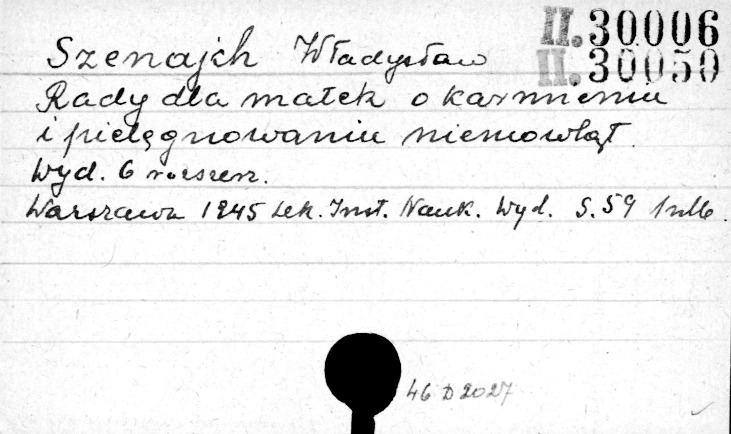 II. 30006
II. 30050
Szenajch Władysław
Rady dla matek o karmieniu
i pielęgnowaniu niemowląt.
Wyd. 6 rozszerz.
Warszawa 1945 Lek. Inst. Nauk. Wyd. S. 59
46 D 2027